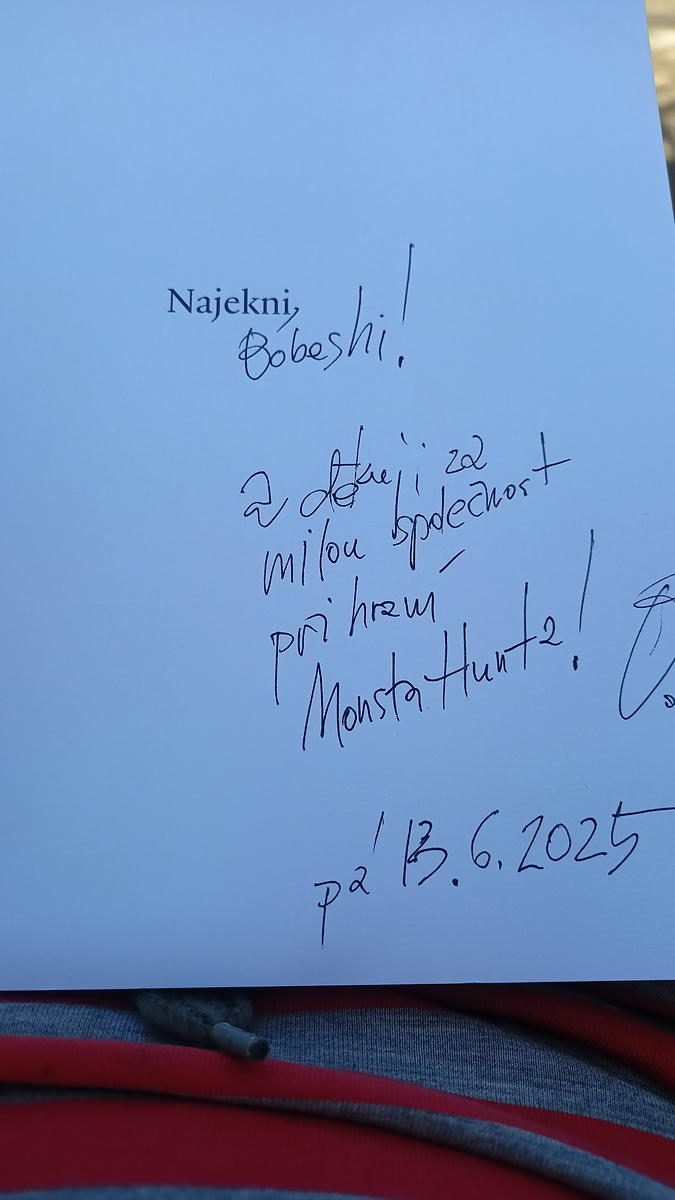 Najekni,
Bobeshi!
a děkuji za
milou společnost
při hraní
MonstaHunta!
pá 13.6.2025